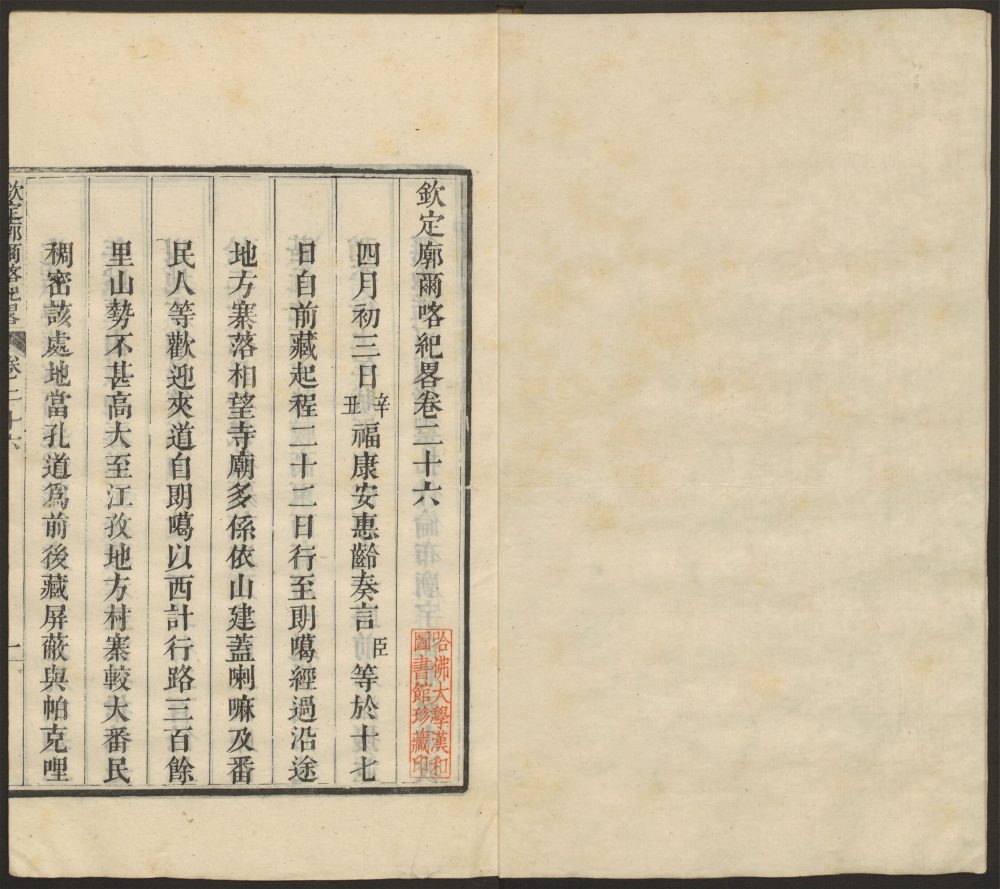 欽定廓爾喀紀畧卷二十六
四月初三日辛丑福康安惠齡奏言臣等於十七
日自前藏起程二十二日行至朗噶經過沿途
地方寨落相望寺廟多係依山建蓋喇嘛及番
民人等歡迎夾道自朗噶以西計行路三百餘
里山勢不甚高大至江孜地方村寨較大番民
稠密該處地當孔道爲前後藏屏蔽與帕克哩
欽定廓爾喀紀畧 卷二十六 一
哈佛大學漢和
圖書館珍藏印